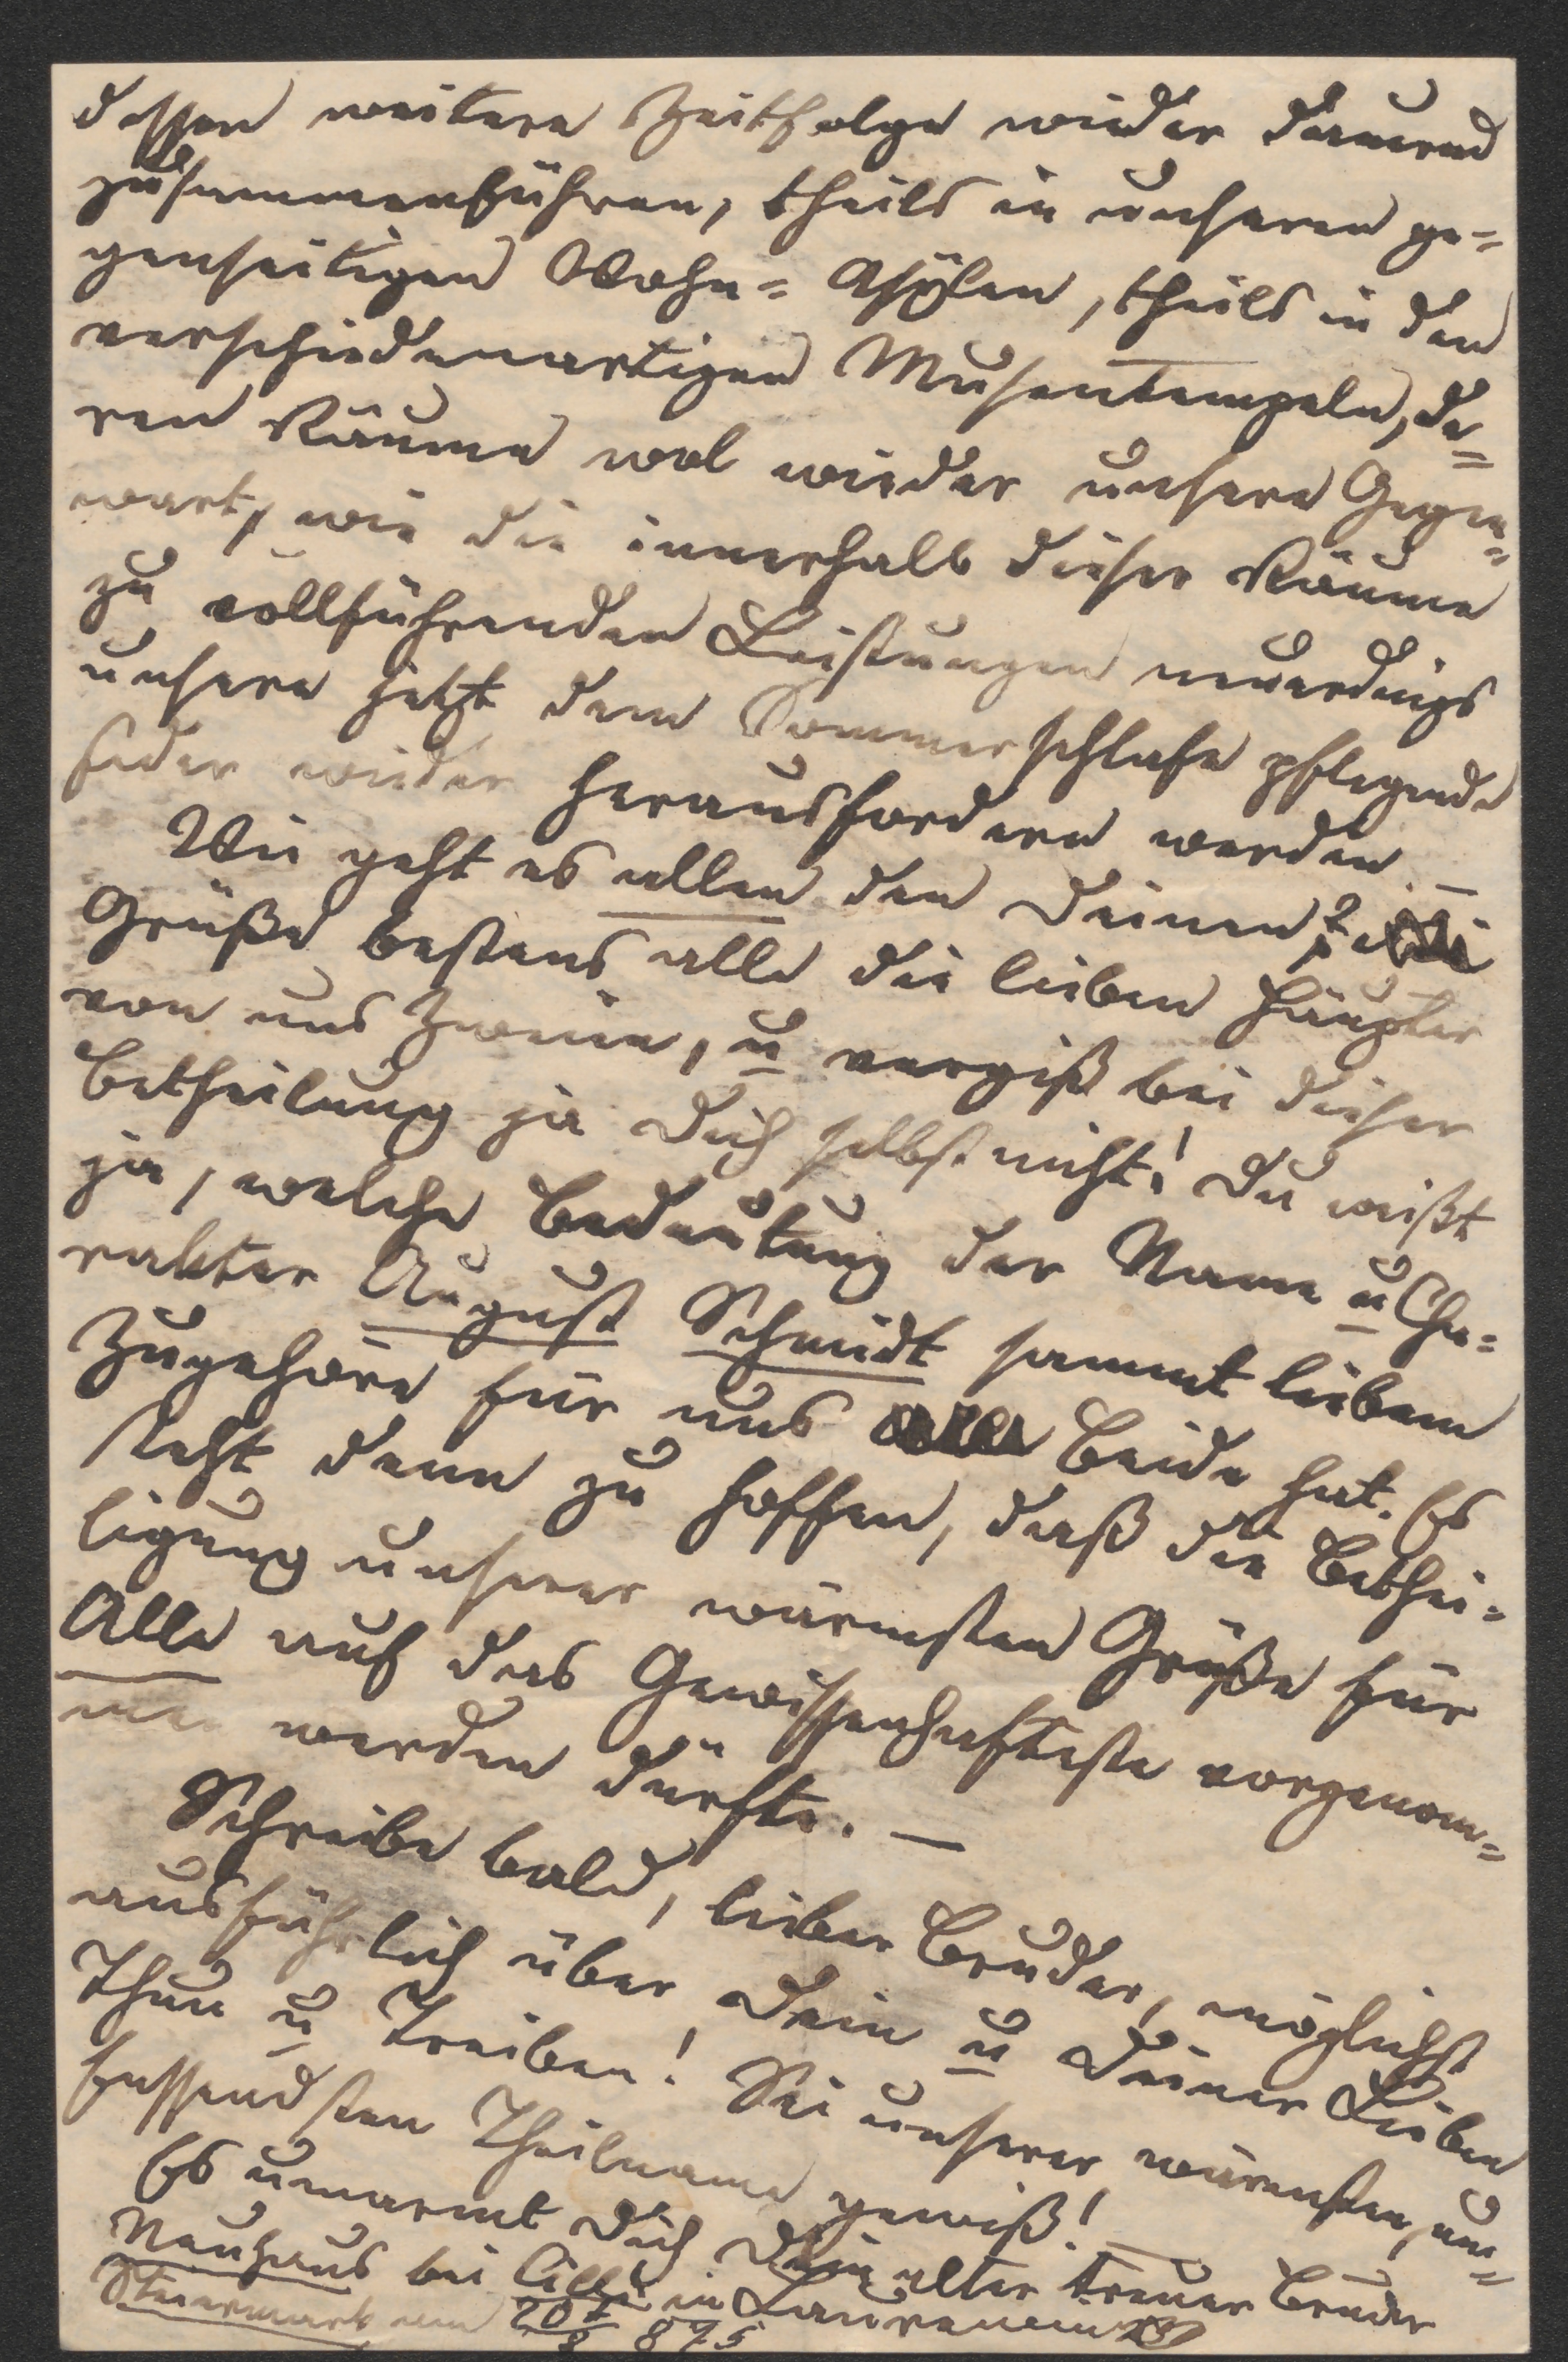 dessen weitere Zeitfolge wieder dauernd
zusammenführen, theils in unseren ge=
genseitigen Wohn= Asÿlen, theils in den
verschiedenartigen Musentempeln, de=
ren Räume wol wieder unsere Gegen=
wart, wie die innerhalb dieser Räume
zu vollführenden Leistungen neuerdings
unsere jetzt dem Sommerschlafe pflegende
Feder wieder herausfordern werden. –
Wie geht es allen den Deinen?
Grüße bestens alle die lieben Häupter
von uns Zweien, u vergiß bei dieser
Betheilung ja Dich selbst nicht! Du weißt
ja, welche Bedeutung der Name u Cha=
rakter August Schmidt sammt liebem
Zugehöre für uns Beide hat. Es
steht denn zu hoffen, daß die Bethei=
ligung unserer wärmsten Grüße für
Alle auf das Gewissenhafteste vorgenom=
men werden dürfte. –
Schreibe bald, lieber Bruder, möglichst
ausführlich über Dein u Deiner Lieben
Thun u Treiben! Sei unserer wärmsten, um=
fassendsten Theilname gewiß! –
Es umarmt Dich Dein alter treuer Bruder
Neuhaus bei Cilli in Laurencin
Steiermark am 20t/8 875